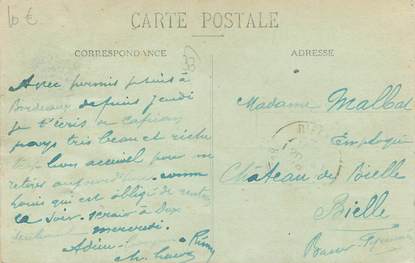 10 €
CARTE POSTALE
CORRESPONDANCE
ADRESSE
Avec permis suis à
Bordeaux depuis jeudi
je t'écris à Capian
pays très beau et riche
très bon accueil pour
retour aujourd'hui comme
Louis qui est obligé de rentrer
ce soir. serai à Dax
seulement mercredi.
Adieu
Madame Malbat
Employée
Château de Bielle
Bielle
Basses Pyrénées